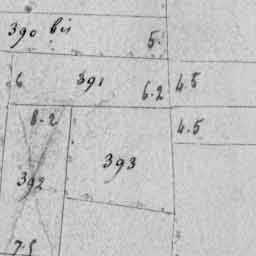 390 bis
5.
6
391
6.2
4.5
8.2
4.5
393
392
7.5